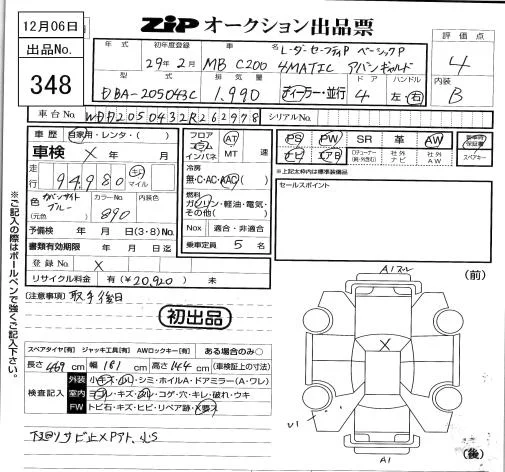 12月06日
ZIP オークション出品票
出品No.
348
年式 初年度登録 車名
29年2月 MB C200 レーダーセーフティP ベーシックP
4MATIC アバンギャルド
型式 排気量 ドア ハンドル
DBA-205043C 1,990 ディーラー・並行 4 左・右
評価点
4
内装
B
車台No. WDD2050432R262978 シリアルNo.
車歴 自家用・レンタ・( )
車検 X 年 月
走行 94,980 km マイル
色 カバンサイトブルー カラーNo. 890 内装色
(元色)
予備検 年 月 日(3・8)No.
書類有効期限 年 月 日迄
登録No. X
リサイクル料金 有(¥20,920) 未
フロア コラム インパネ AT MT 速
冷房
無・C・AC・AAC
燃料
ガソリン・軽油・電気・その他( )
Nox 適合・非適合
乗車定員 5 名
PS PW SR 革 AW
ナビ エアB 社外ナビ 社外AW スペアキー
※上記太枠内は標準装備品
セールスポイント
※ご記入の際はボールペンで強くご記入下さい。
注意事項 取書後日
初出品
スペアタイヤ[有] ジャッキ工具[有] AWロックキー[有] ある場合のみ○
長さ 469 cm 幅 181 cm 高さ 144 cm (車検証上の寸法)
検査記入
外装 小キズ・凹・シミ・ホイルA・ドアミラー(A・ワレ)
室内 ヨゴレ・キズ・スレ・コゲ・穴・キレ・破れ・ウキ
FW トビ石・キズ・ヒビ・リペア跡・X要ス
(前)
A1
X
A1
(後)